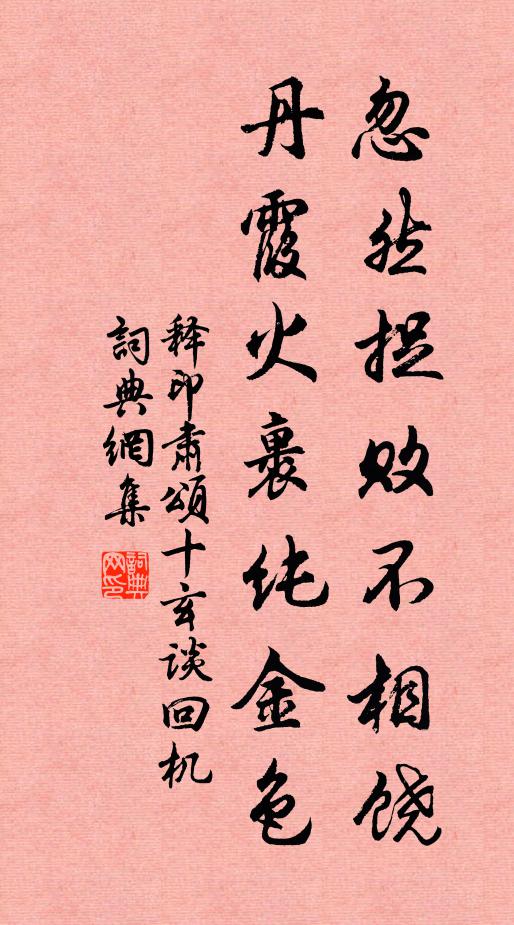 忽然捉败不相饶
丹霞火裹纯金色
释印肃頌十玄谈回机
詞典網集
詞典网印